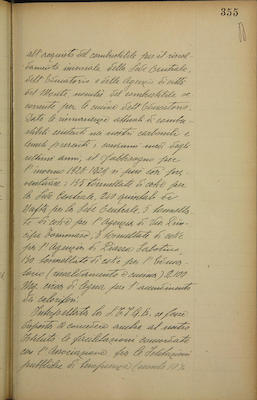 355
all'acquisto del combustibile per il riscal-
damento invernale della Sede Centrale,
dell'Educatorio e delle Agenzie di città
del Monte nonché del combustibile oc-
corrente per le cucine dell'Educatorio.
Date le rimanenze attuali di combu-
stibili esistenti nei nostri carbonili e
tenuti presenti i consumi medi degli
ultimi anni, il fabbisogno per
l'inverno 1928-1929 si può così pre-
ventivare: 155 tonnellate di coke per
la Sede Centrale, 200 quintali di
Nafta per la Sede Centrale, 5 tonnella-
te di coke per l'Agenzia di Via Prin-
cipe Tommaso, 3 tonnellate di coke
per l'Agenzia di Piazza Sabotino
130 tonnellate di coke per l'Educa-
torio (riscaldamento e cucine) 2.100
Mg. circa di legna per l'accendimento
dei caloriferi.
Interpellata la S.I.G.A. si può
disposta di concedere anche al nostro
Istituto le facilitazioni concordate
con l'Associazione fra le Istituzioni
pubbliche di beneficenza